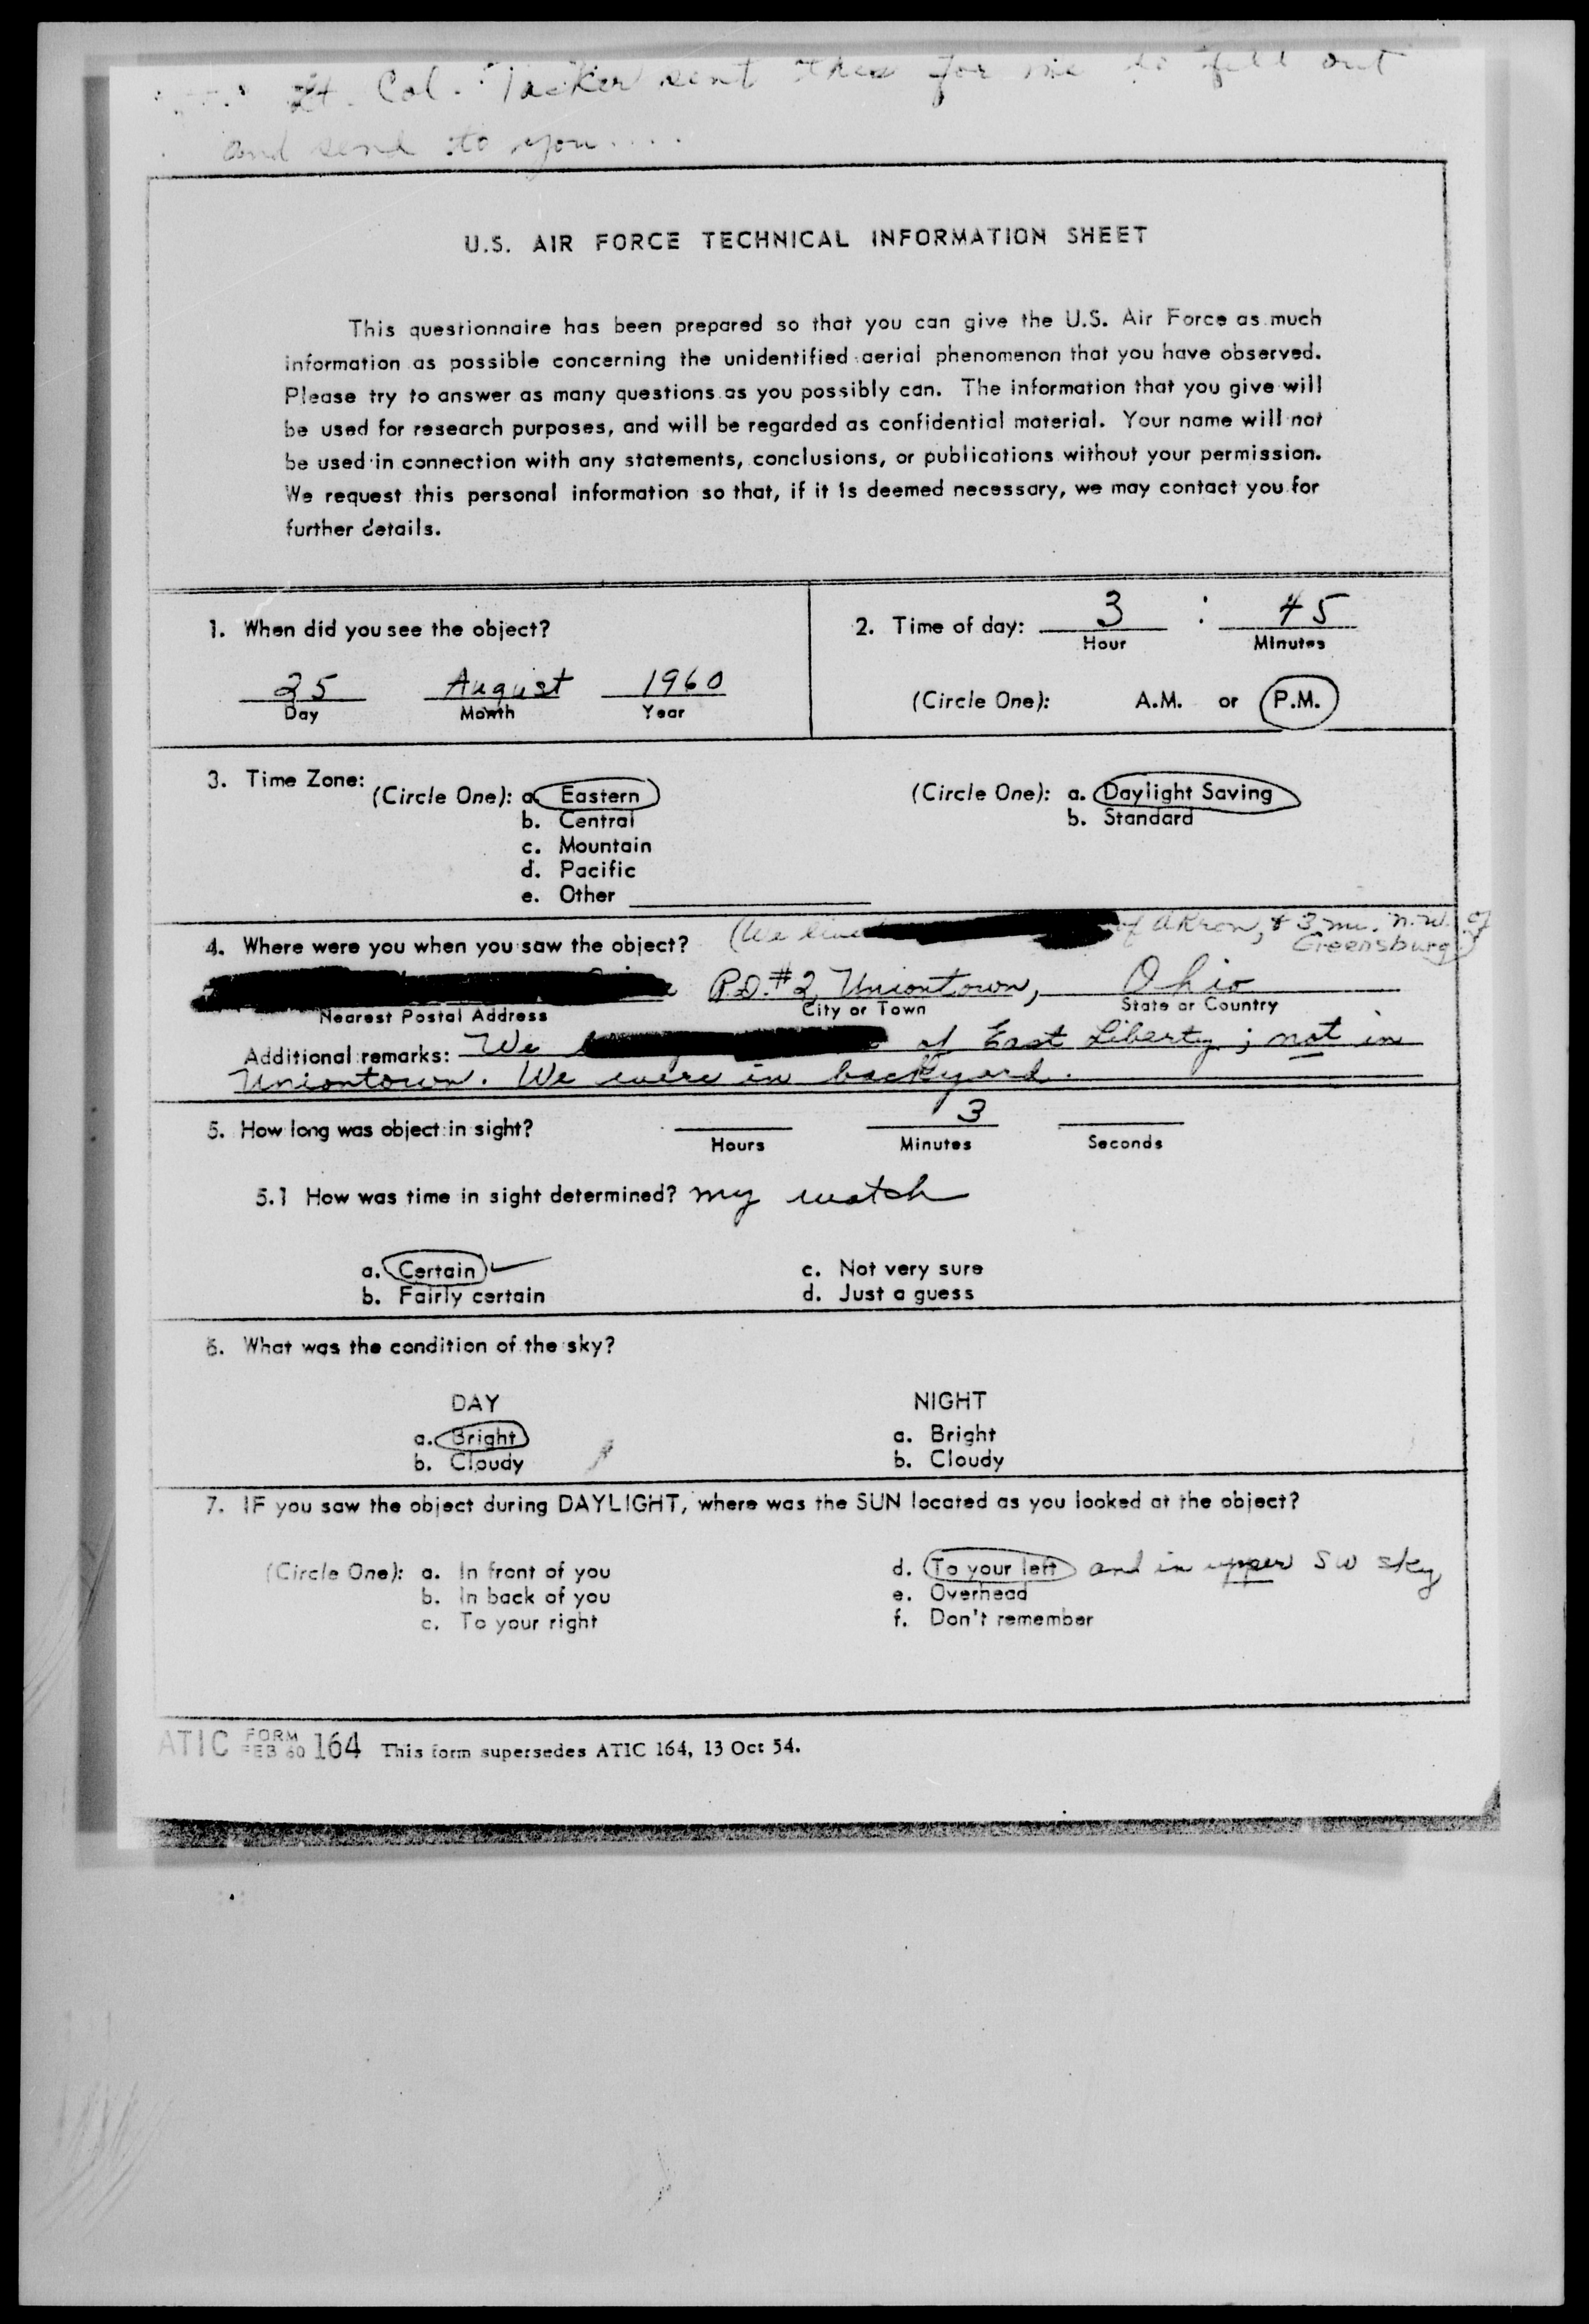 Lt. Col. Tacker sent this for me to fill out
and send to you....
U.S. AIR FORCE TECHNICAL INFORMATION SHEET
This questionnaire has been prepared so that you can give the U.S. Air Force as much
information as possible concerning the unidentified aerial phenomenon that you have observed.
Please try to answer as many questions as you possibly can. The information that you give will
be used for research purposes, and will be regarded as confidential material. Your name will not
be used in connection with any statements, conclusions, or publications without your permission.
We request this personal information so that, if it is deemed necessary, we may contact you for
further details.
1. When did you see the object?
25 August 1960
Day Month Year
2. Time of day: 3 : 45
Hour Minutes
(Circle One): A.M. or P.M.
3. Time Zone:
(Circle One): a. Eastern
b. Central
c. Mountain
d. Pacific
e. Other
(Circle One): a. Daylight Saving
b. Standard
4. Where were you when you saw the object? (We live of Akron, & 3 mi. N.W. of
Greensburg)
R.D. #2, Uniontown, Ohio
Nearest Postal Address City or Town State or Country
Additional remarks: We of East Liberty; not in
Uniontown. We were in backyard.
5. How long was object in sight? 3
Hours Minutes Seconds
5.1 How was time in sight determined? my watch
a. Certain
b. Fairly certain
c. Not very sure
d. Just a guess
6. What was the condition of the sky?
DAY
a. Bright
b. Cloudy
NIGHT
a. Bright
b. Cloudy
7. IF you saw the object during DAYLIGHT, where was the SUN located as you looked at the object?
(Circle One): a. In front of you
b. In back of you
c. To your right
d. To your left and in upper SW sky
e. Overhead
f. Don't remember
ATIC FORM FEB 60 164 This form supersedes ATIC 164, 13 Oct 54.